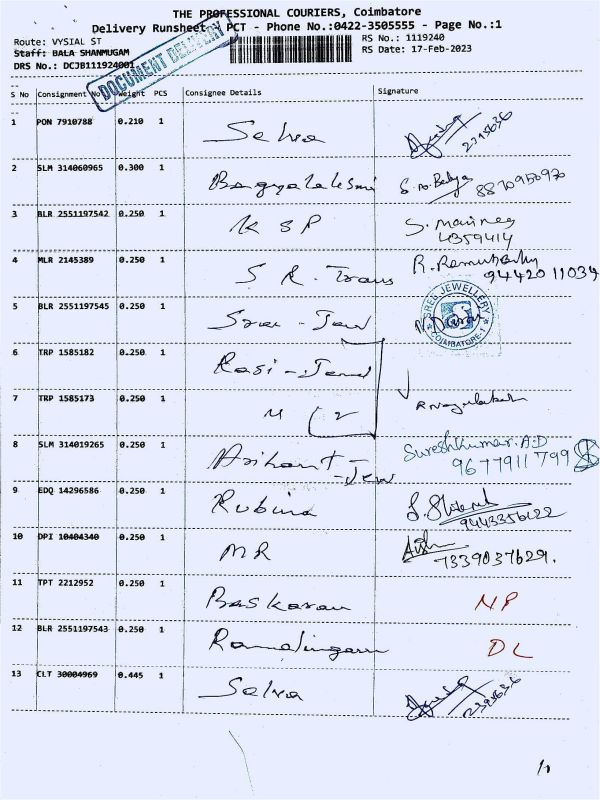 THE PROFESSIONAL COURIERS, Coimbatore
Delivery Runsheet - PCT - Phone No.:0422-3505555 - Page No.:1
Route: VYSIAL ST RS No.: 1119240
Staff: BALA SHANMUGAM RS Date: 17-Feb-2023
DRS No.: DCJB111924001
DOCUMENT DELIVERY
S No Consignment No Weight PCS Consignee Details Signature
1 PON 7910788 0.210 1 Selva
2 SLM 314060965 0.300 1 Bagyalakshmi 8870950970
3 BLR 2551197542 0.250 1 KSP S.
4359414
4 MLR 2145389 0.250 1 S R. Trans R.
9442011034
5 BLR 2551197545 0.250 1 Sree - Jew SREE JEWELLERY COIMBATORE-1
6 TRP 1585182 0.250 1 Rasi - Jewel
7 TRP 1585173 0.250 1 M
8 SLM 314019265 0.250 1 Arihant - Jew Sureshkumar. A.D
9677911799
9 EDQ 14296586 0.250 1 Rubina
9443356122
10 DPI 10404340 0.250 1 MR 7339037629.
11 TPT 2212952 0.250 1 Baskaran NP
12 BLR 2551197543 0.250 1 Ramalingam DL
13 CLT 30004969 0.445 1 Selva